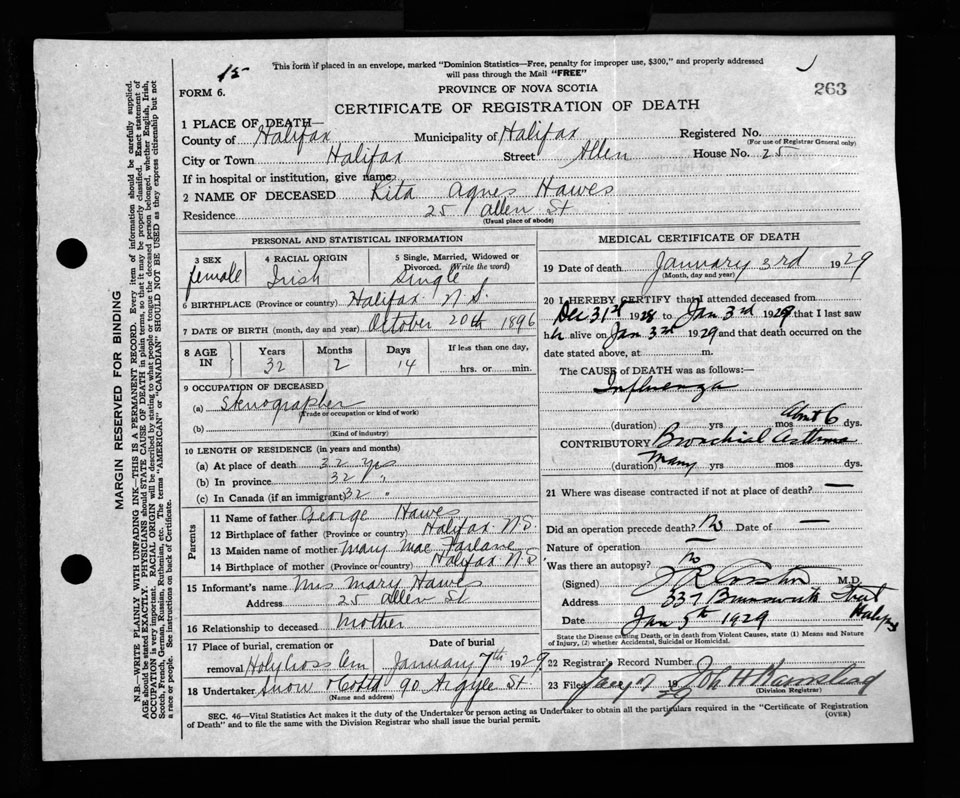 15
This form if placed in an envelope, marked "Dominion Statistics—Free, penalty for improper use, $300," and properly addressed
will pass through the Mail "FREE"
FORM 6.
PROVINCE OF NOVA SCOTIA
263
CERTIFICATE OF REGISTRATION OF DEATH
1 PLACE OF DEATH—
County of Halifax Municipality of Halifax Registered No.
(For use of Registrar General only)
City or Town Halifax Street Allen House No. 25
If in hospital or institution, give name
2 NAME OF DECEASED Rita Agnes Hawes
Residence 25 Allen St
(Usual place of abode)
PERSONAL AND STATISTICAL INFORMATION
3 SEX female
4 RACIAL ORIGIN Irish
5 Single, Married, Widowed or
Divorced. (Write the word) Single
6 BIRTHPLACE (Province or country) Halifax N.S.
7 DATE OF BIRTH (month, day and year) October 20th 1896
8 AGE IN
Years 32
Months 2
Days 14
If less than one day,
hrs. or min.
9 OCCUPATION OF DECEASED
(a) Stenographer
(Trade or occupation or kind of work)
(b)
(Kind of industry)
10 LENGTH OF RESIDENCE (in years and months)
(a) At place of death 32 yrs
(b) In province 32 "
(c) In Canada (if an immigrant) 32 "
Parents
11 Name of father George Hawes
12 Birthplace of father (Province or country) Halifax N.S.
13 Maiden name of mother Mary Mac Farlane
14 Birthplace of mother (Province or country) Halifax N.S.
15 Informant's name Mrs Mary Hawes
Address 25 Allen St
16 Relationship to deceased Mother
17 Place of burial, cremation or Date of burial
removal Holy Cross Cem January 7th 1929
18 Undertaker Snow 90 Argyle St
(Name and address)
MEDICAL CERTIFICATE OF DEATH
19 Date of death January 3rd 1929
(Month, day and year)
20 I HEREBY CERTIFY that I attended deceased from
Dec 31st 1928 to Jan 3rd 1929 that I last saw
her alive on Jan 3rd 1929 and that death occurred on the
date stated above, at m.
The CAUSE of DEATH was as follows:—
Influenza
(duration) yrs mos about 6 dys.
CONTRIBUTORY Bronchial Asthma
(duration) Many yrs mos dys.
21 Where was disease contracted if not at place of death? —
Did an operation precede death? No Date of —
Nature of operation —
Was there an autopsy? No
(Signed) M.D.
Address 337 Brunswick Street
Halifax
Date Jan 5th 1929
State the Disease causing Death, or in death from Violent Causes, state (1) Means and Nature
of Injury, (2) whether Accidental, Suicidal or Homicidal.
22 Registrar's Record Number
23 Filed Jany 7 19
(Division Registrar)
SEC. 46—Vital Statistics Act makes it the duty of the Undertaker or person acting as Undertaker to obtain all the particulars required in the "Certificate of Registration
of Death" and to file the same with the Division Registrar who shall issue the burial permit.
(OVER)
MARGIN RESERVED FOR BINDING
N.B.—WRITE PLAINLY WITH UNFADING INK—THIS IS A PERMANENT RECORD. Every item of information should be carefully supplied.
AGE should be stated EXACTLY. PHYSICIANS should STATE CAUSE OF DEATH in plain terms, so that it may be properly classified. Exact statement of
OCCUPATION is very important. RACIAL ORIGIN will be described by stating to what people or tongue the deceased person belonged, whether English, Irish,
Scotch, French, German, Russian, Ruthenian, etc. The terms "AMERICAN" or "CANADIAN" SHOULD NOT BE USED as they express citizenship but not
a race or people. See instructions on back of Certificate.